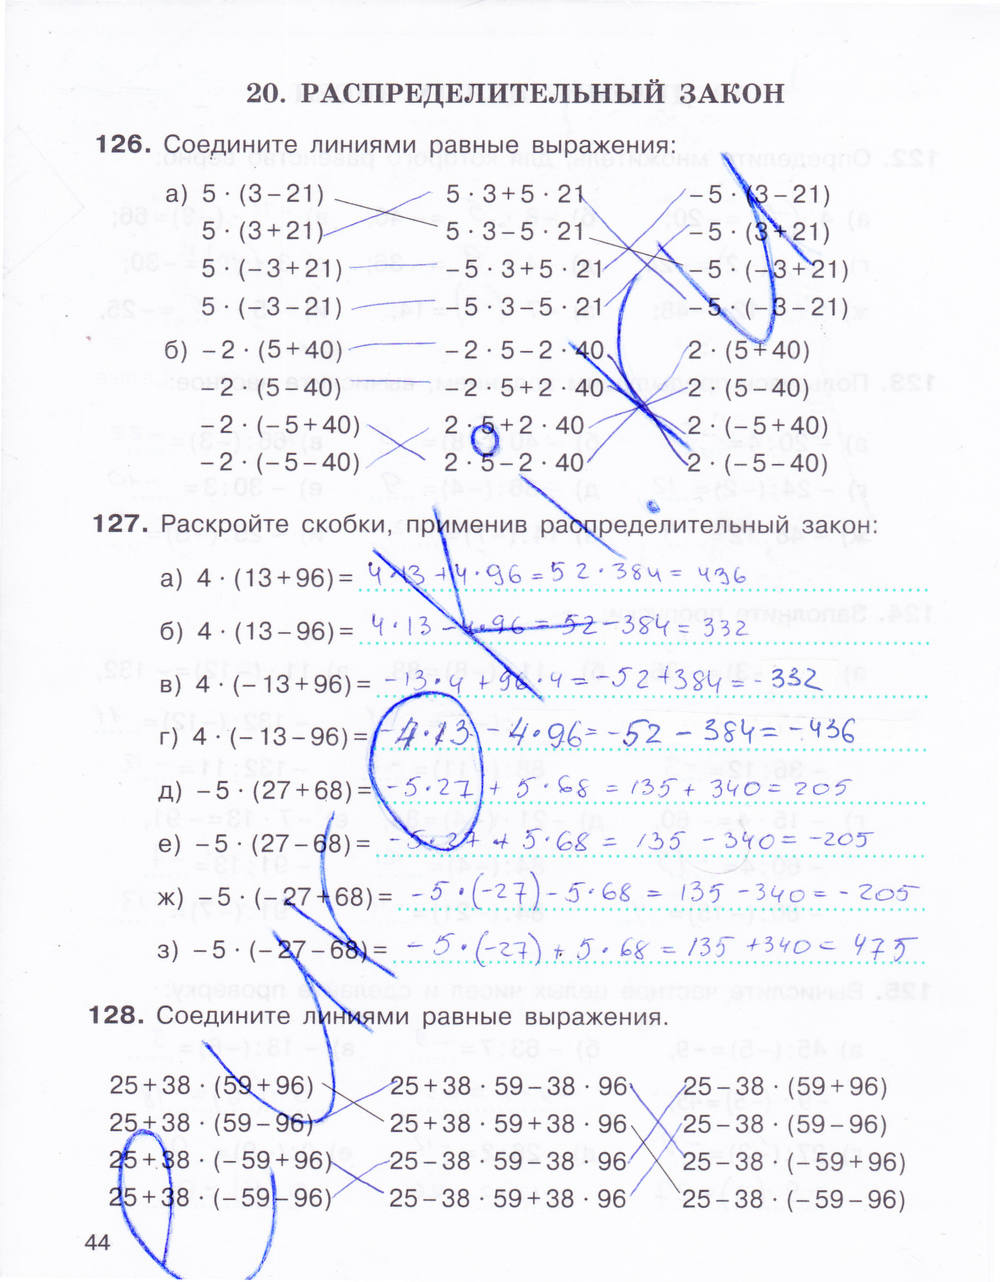 20. РАСПРЕДЕЛИТЕЛЬНЫЙ ЗАКОН
126. Соедините линиями равные выражения:
а) 5 · (3 – 21) 5 · 3 + 5 · 21 – 5 · (3 – 21)
5 · (3 + 21) 5 · 3 – 5 · 21 – 5 · (3 + 21)
5 · (– 3 + 21) – 5 · 3 + 5 · 21 – 5 · (– 3 + 21)
5 · (– 3 – 21) – 5 · 3 – 5 · 21 – 5 · (– 3 – 21)
б) – 2 · (5 + 40) – 2 · 5 – 2 · 40 2 · (5 + 40)
– 2 · (5 – 40) – 2 · 5 + 2 · 40 2 · (5 – 40)
– 2 · (– 5 + 40) 2 · 5 + 2 · 40 2 · (– 5 + 40)
– 2 · (– 5 – 40) 2 · 5 – 2 · 40 2 · (– 5 – 40)
127. Раскройте скобки, применив распределительный закон:
а) 4 · (13 + 96) = 4·13 + 4·96 = 52·384 = 436
б) 4 · (13 – 96) = 4·13 – 4·96 = 52 – 384 = 332
в) 4 · (– 13 + 96) = – 13·4 + 96·4 = – 52 + 384 = – 332
г) 4 · (– 13 – 96) = – 4·13 – 4·96 = – 52 – 384 = – 436
д) – 5 · (27 + 68) = – 5·27 + 5·68 = 135 + 340 = 205
е) – 5 · (27 – 68) = – 5·27 + 5·68 = 135 – 340 = – 205
ж) – 5 · (– 27 + 68) = – 5·(–27) – 5·68 = 135 – 340 = – 205
з) – 5 · (– 27 – 68) = – 5·(–27) + 5·68 = 135 + 340 = 475
128. Соедините линиями равные выражения.
25 + 38 · (59 + 96) 25 + 38 · 59 – 38 · 96 25 – 38 · (59 + 96)
25 + 38 · (59 – 96) 25 + 38 · 59 + 38 · 96 25 – 38 · (59 – 96)
25 + 38 · (– 59 + 96) 25 – 38 · 59 – 38 · 96 25 – 38 · (– 59 + 96)
25 + 38 · (– 59 – 96) 25 – 38 · 59 + 38 · 96 25 – 38 · (– 59 – 96)
44